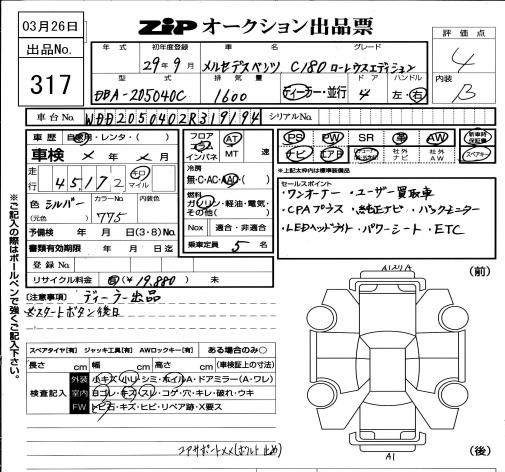 03月26日
ZIP オークション出品票
出品No.
317
年式 初年度登録 車名 グレード
29年9月 メルセデスベンツ C180 ローレウスエディション
型式 排気量 ドア ハンドル
DBA-205040C 1600 ディーラー・並行 4 左・右
評価点
4
内装
B
車台No. WDD2050402R319194 シリアルNo.
車歴 自家用・レンタ・( )
車検 × 年 × 月
走行 45,172 キロ マイル
色 シルバー (元色) カラーNo. 775 内装色
予備検 年 月 日(3・8)No.
書類有効期限 年 月 日迄
登録No.
リサイクル料金 有(¥19,880) 未
フロア コラム インパネ AT MT 速
冷房 無・C・AC・AAC
燃料 ガソリン・軽油・電気・その他( )
Nox 適合・非適合
乗車定員 5 名
PS PW SR 革 AW 新車時保証書
ナビ エアB 社外ナビ 社外AW スペアキー
※上記太枠内は標準装備品
セールスポイント
・ワンオーナー ・ユーザー買取車
・CPAプラス ・純正ナビ ・バックモニター
・LEDヘッドライト ・パワーシート ・ETC
※ご記入の際はボールペンで強くご記入下さい。
[注意事項] ディーラー出品
※スタートボタン後日
スペアタイヤ[有] ジャッキ工具[有] AWロックキー[有] ある場合のみ○
長さ cm 幅 cm 高さ cm (車検証上の寸法)
検査記入
外装 小キズ・小リ・シミ・ホイルA・ドアミラー(A・ワレ)
室内 ヨゴレ・キズ・スレ・コゲ・穴・キレ・破れ・ウキ
FW トビ石・キズ・ヒビ・リペア跡・X要ス
コアサポートXX(ボルト止め)
(前)
(後)
A1